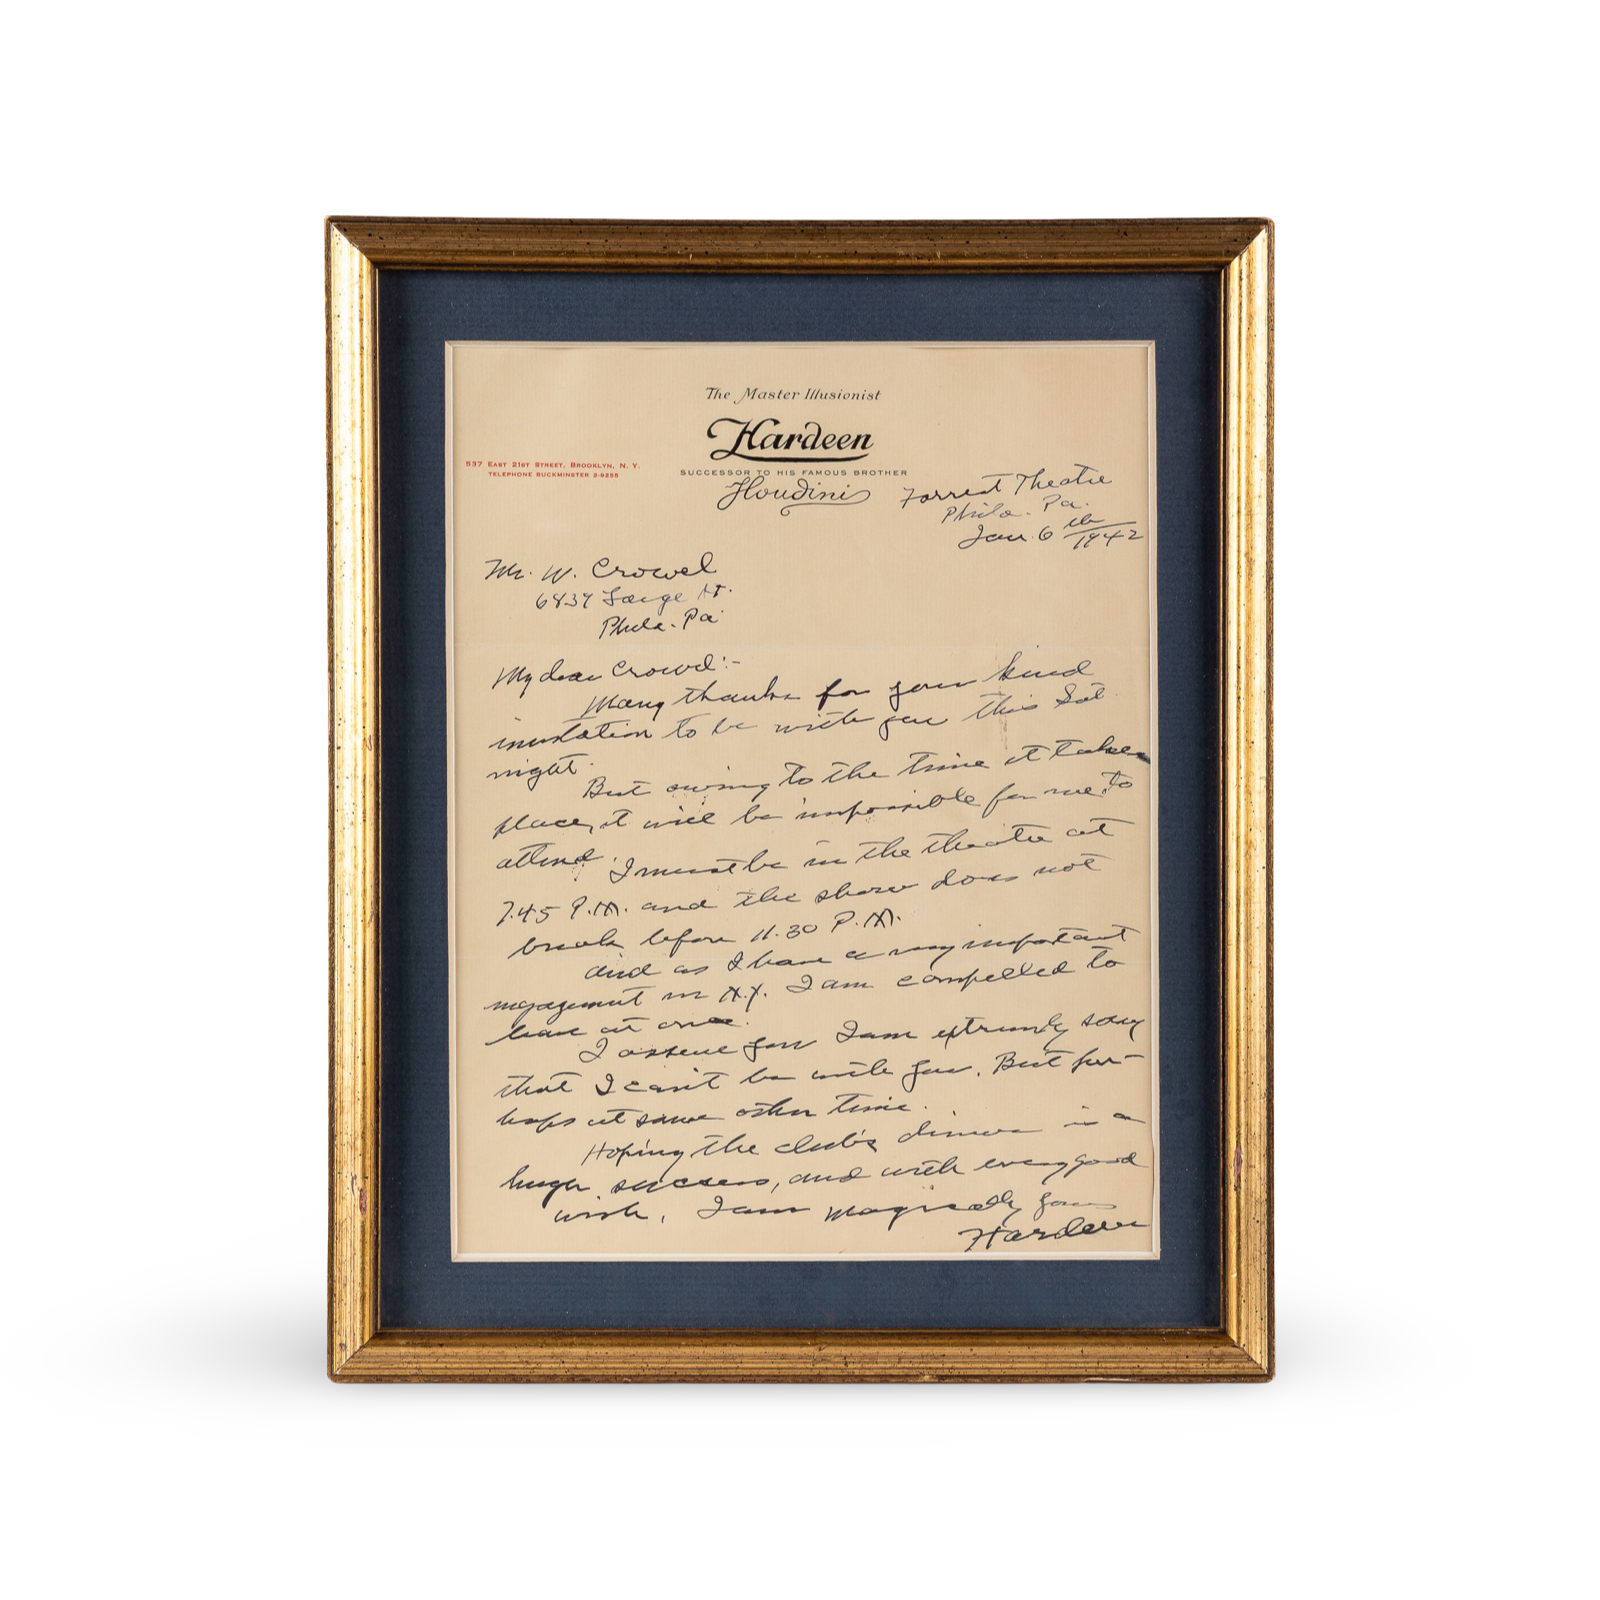 The Master Illusionist
Hardeen
537 East 21st Street, Brooklyn, N. Y.
Telephone Buckminster 2-9255
SUCCESSOR TO HIS FAMOUS BROTHER
Houdini
Forrest Theatre
Phila. Pa.
Jan. 6th 1942
Mr. W. Crowel
Large St.
Phila. Pa
My dear Crowel:-
Many thanks for your kind
invitation to be with you this Sat
night.
But owing to the time it takes
place, it will be impossible for me to
attend. I must be in the theatre at
7.45 P.M. and the show does not
break before 11.30 P.M.
and as I have a very important
engagement in N.Y. I am compelled to
leave at once.
I assure you I am extremely sorry
that I can't be with you. But per-
haps at some other time.
Hoping the club's dinner is a
huge success, and with every good
wish, I am Magically yours
Hardeen